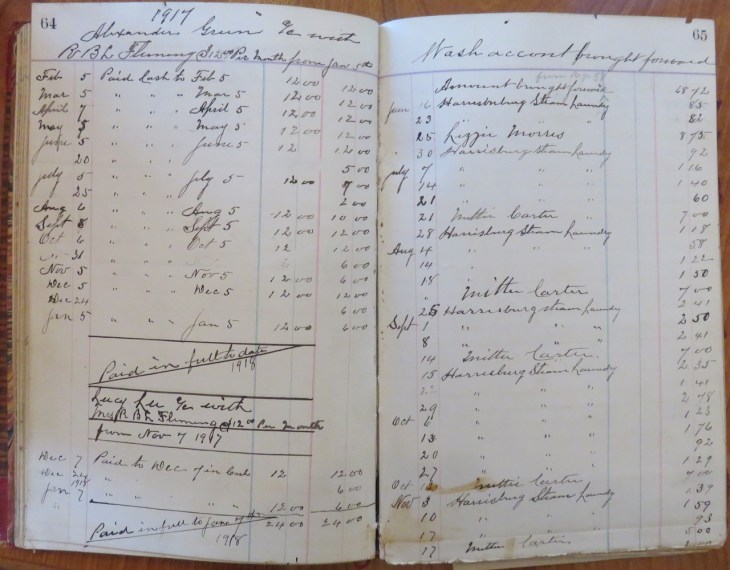 64
1917
Alexander Green % with
R B L Fleming $12 00 Per Month from Jan 5th
Feb 5 Paid Cash to Feb 5 12 00 12 00
Mar 5 " " " Mar 5 12 00 12 00
April 7 " " " April 5 12 00 12 00
May 5 " " " May 5 12 00 12 00
June 5 " " " June 5 12 12 00
20 " " " 5 00
July 5 " " " July 5 12 00 7 00
25 " " " 2 00
Aug 6 " " " Aug 5 12 00 10 00
Sept 8 " " " Sept 5 12 00 12 00
Oct 6 " " " Oct 5 12 12 00
" 31 " " " 6 00
Nov 5 " " " Nov 5 12 00 6 00
Dec 5 " " " Dec 5 12 00 12 00
Dec 24 " " " 6 00
Jan 5 " " " Jan 5 12 00 6 00
Paid in full to date
1918
Lucy Lee % with
Mrs R B L Fleming $12 00 Per Month
from Nov 7 1917
Dec 7 Paid to Dec 7 in Cash 12 12 00
Dec 24 " " " 6 00
1918
Jan 7 " " " 12 00 6 00
Paid in full to Jan 24 00 24 00
1918
65
Wash account brought forward
from Page
Amount brought forward 68 72
June 16 Harrisonburg Steam Laundry 85
23 " " " 82
25 Lizzie Morris 8 75
30 Harrisburg Steam Laundry 92
July 7 " " " 1 16
14 " " " 1 40
21 " " " 60
21 Mittie Carter 7 00
28 Harrisburg Steam Laundry 1 18
Aug 4 " " " 58
14 " " " 1 22
18 " " " 1 50
" Mittie Carter 7 00
25 Harrisburg Steam Laundry 2 41
Sept 1 " " " 2 50
8 " " " 2 41
14 Mittie Carter 7 00
15 Harrisburg Steam Laundry 2 35
22 " " " 1 41
29 " " " 2 78
Oct 6 " " " 1 23
13 " " " 1 76
20 " " " 92
27 " " " 1 29
Oct Mittie Carter 7 00
Nov 3 Harrisburg Steam Laundry 1 39
10 " " " 1 59
17 " " " 93
17 Mittie Carter 5 00